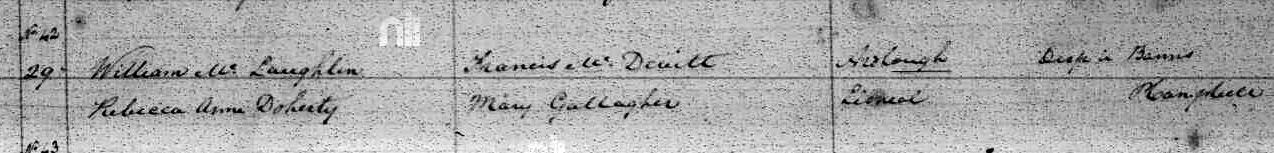 No 42
29 William Mc Laughlin Francis Mc Devitt Ardlough Disp in Banns
Rebecca Anne Doherty Mary Gallagher Lisneal Campbell
No 43